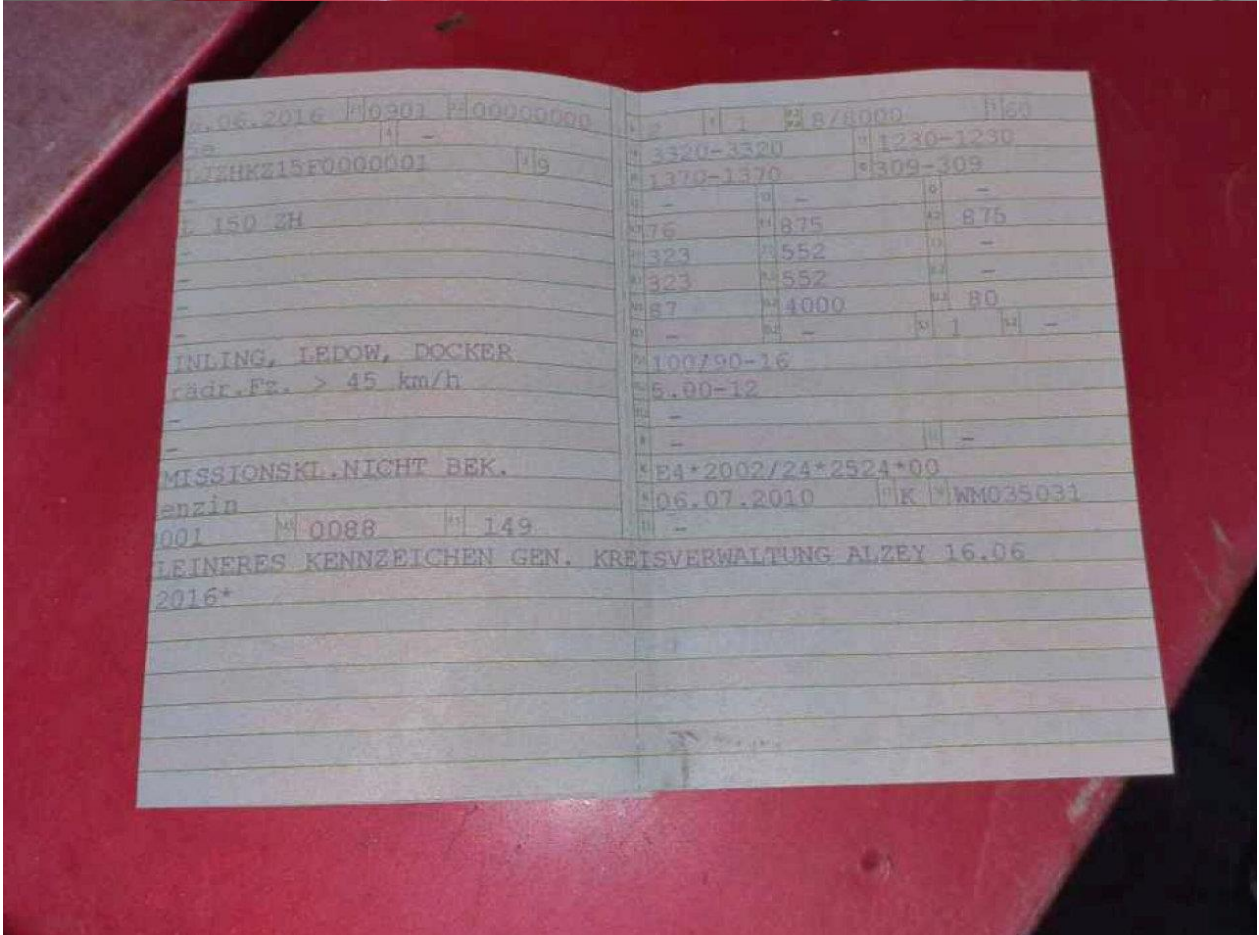 .06.2016 0901 00000000
LJZHKZ15F0000001 9
-
150 ZH
-
-
-
-
INLING, LEDOW, DOCKER
rädr.Fz. > 45 km/h
-
-
MISSIONSKL.NICHT BEK.
enzin
001 0088 149
2 1 8/8000 60
3320-3320 1230-1230
1370-1370 309-309
- - -
76 875 875
323 552 -
323 552 -
87 4000 80
- - 1 -
100/90-16
5.00-12
-
- -
E4*2002/24*2524*00
06.07.2010 K WM035031
-
LEINERES KENNZEICHEN GEN. KREISVERWALTUNG ALZEY 16.06
2016*